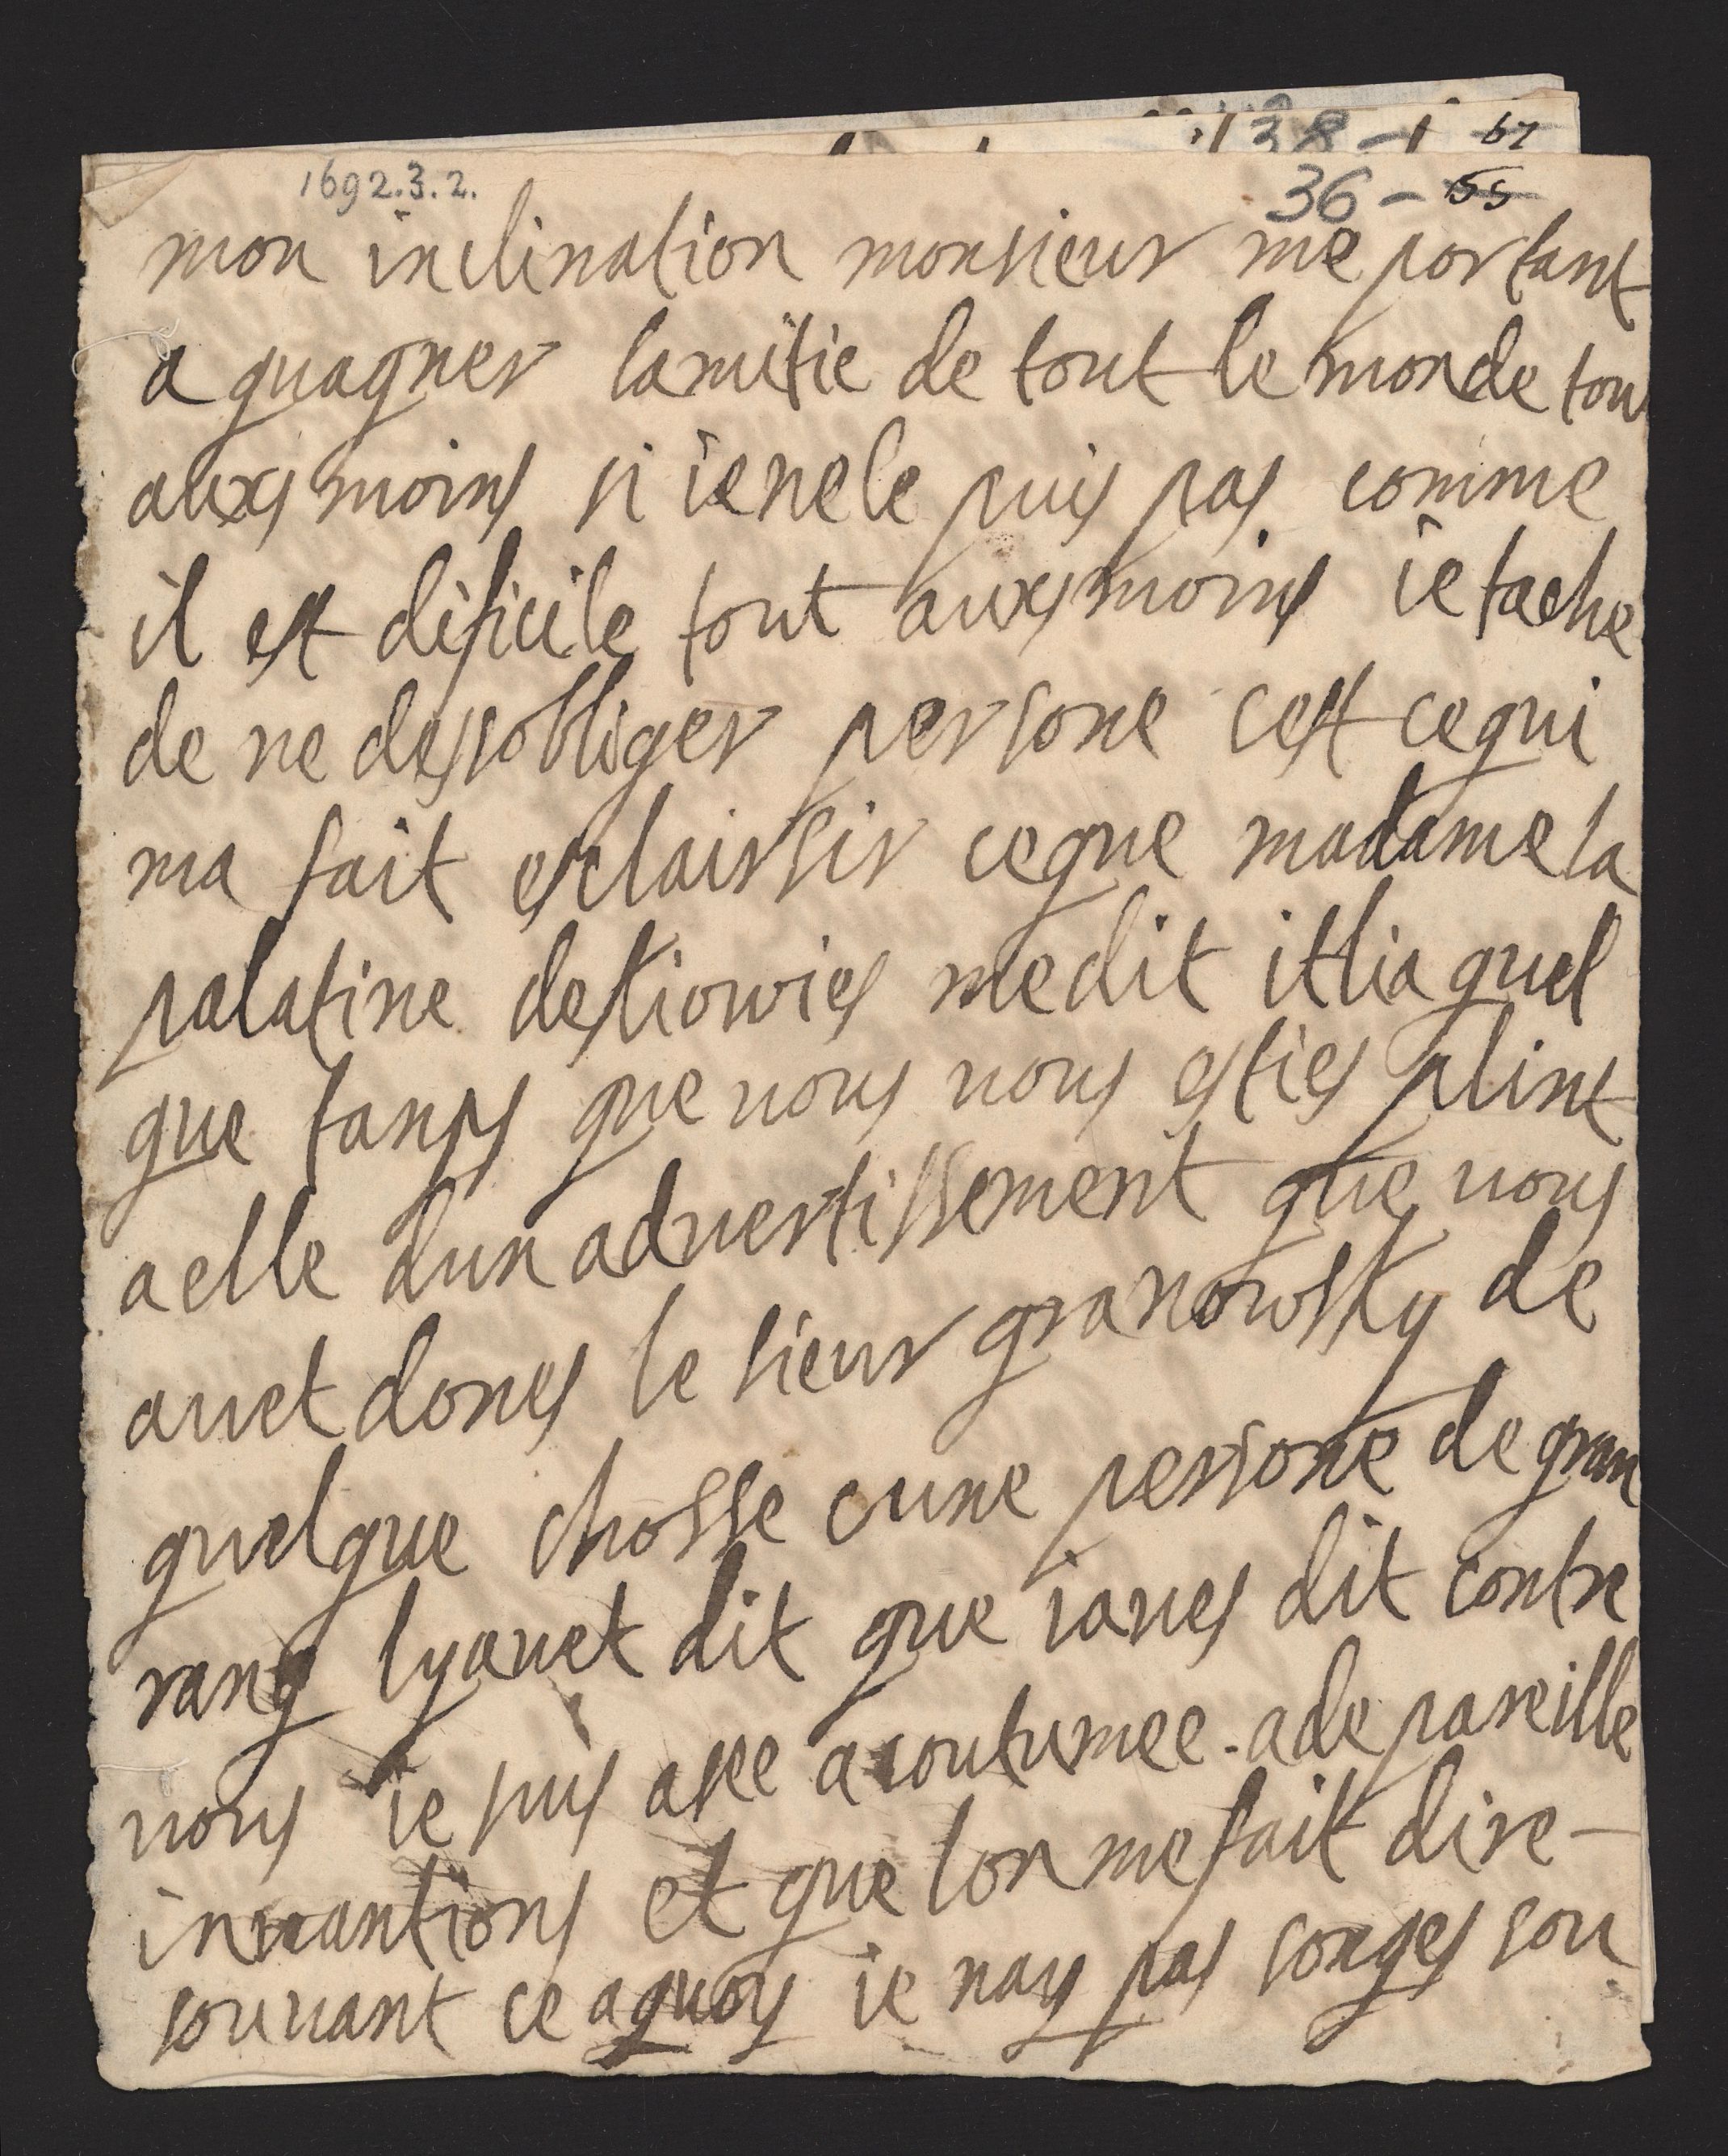 138-1 67
1692.3.2.
36 - 55
mon inclination monsieur me portant
a guagner lamitie de tout le monde tou
auxs moins si ie ne le puis pas comme
il est dificile tout auxs moins ie tache
de ne dessobliger persone cest ce qui
ma fait esclairsir ce que madame la
palatine de kiowies me dit it lia quel
que tanps que vous vous esties plint
a elle dun advertissement que vous
avet dones le sieur granowsky de
quelque chosse cune persone de gran
rang lyavet dit que iaves dit contre
vous ie suis asse acoutumee a de pareille
invantions et que lon me fait dire -
souvant ce a quoy ie nay pas songes sou